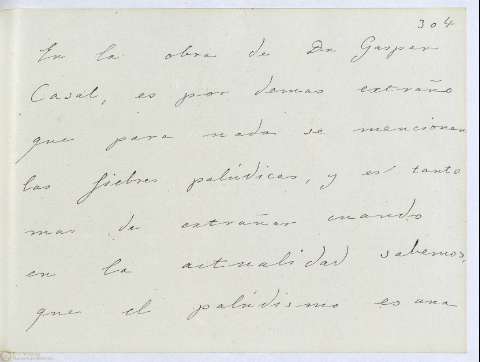 304
En la obra de Dn Gaspar
Casal, es por demas extraño
que para nada se mencionan
las fiebres palúdicas, y es tanto
mas de extrañar cuando
en la actualidad sabemos,
que el palúdismo es una